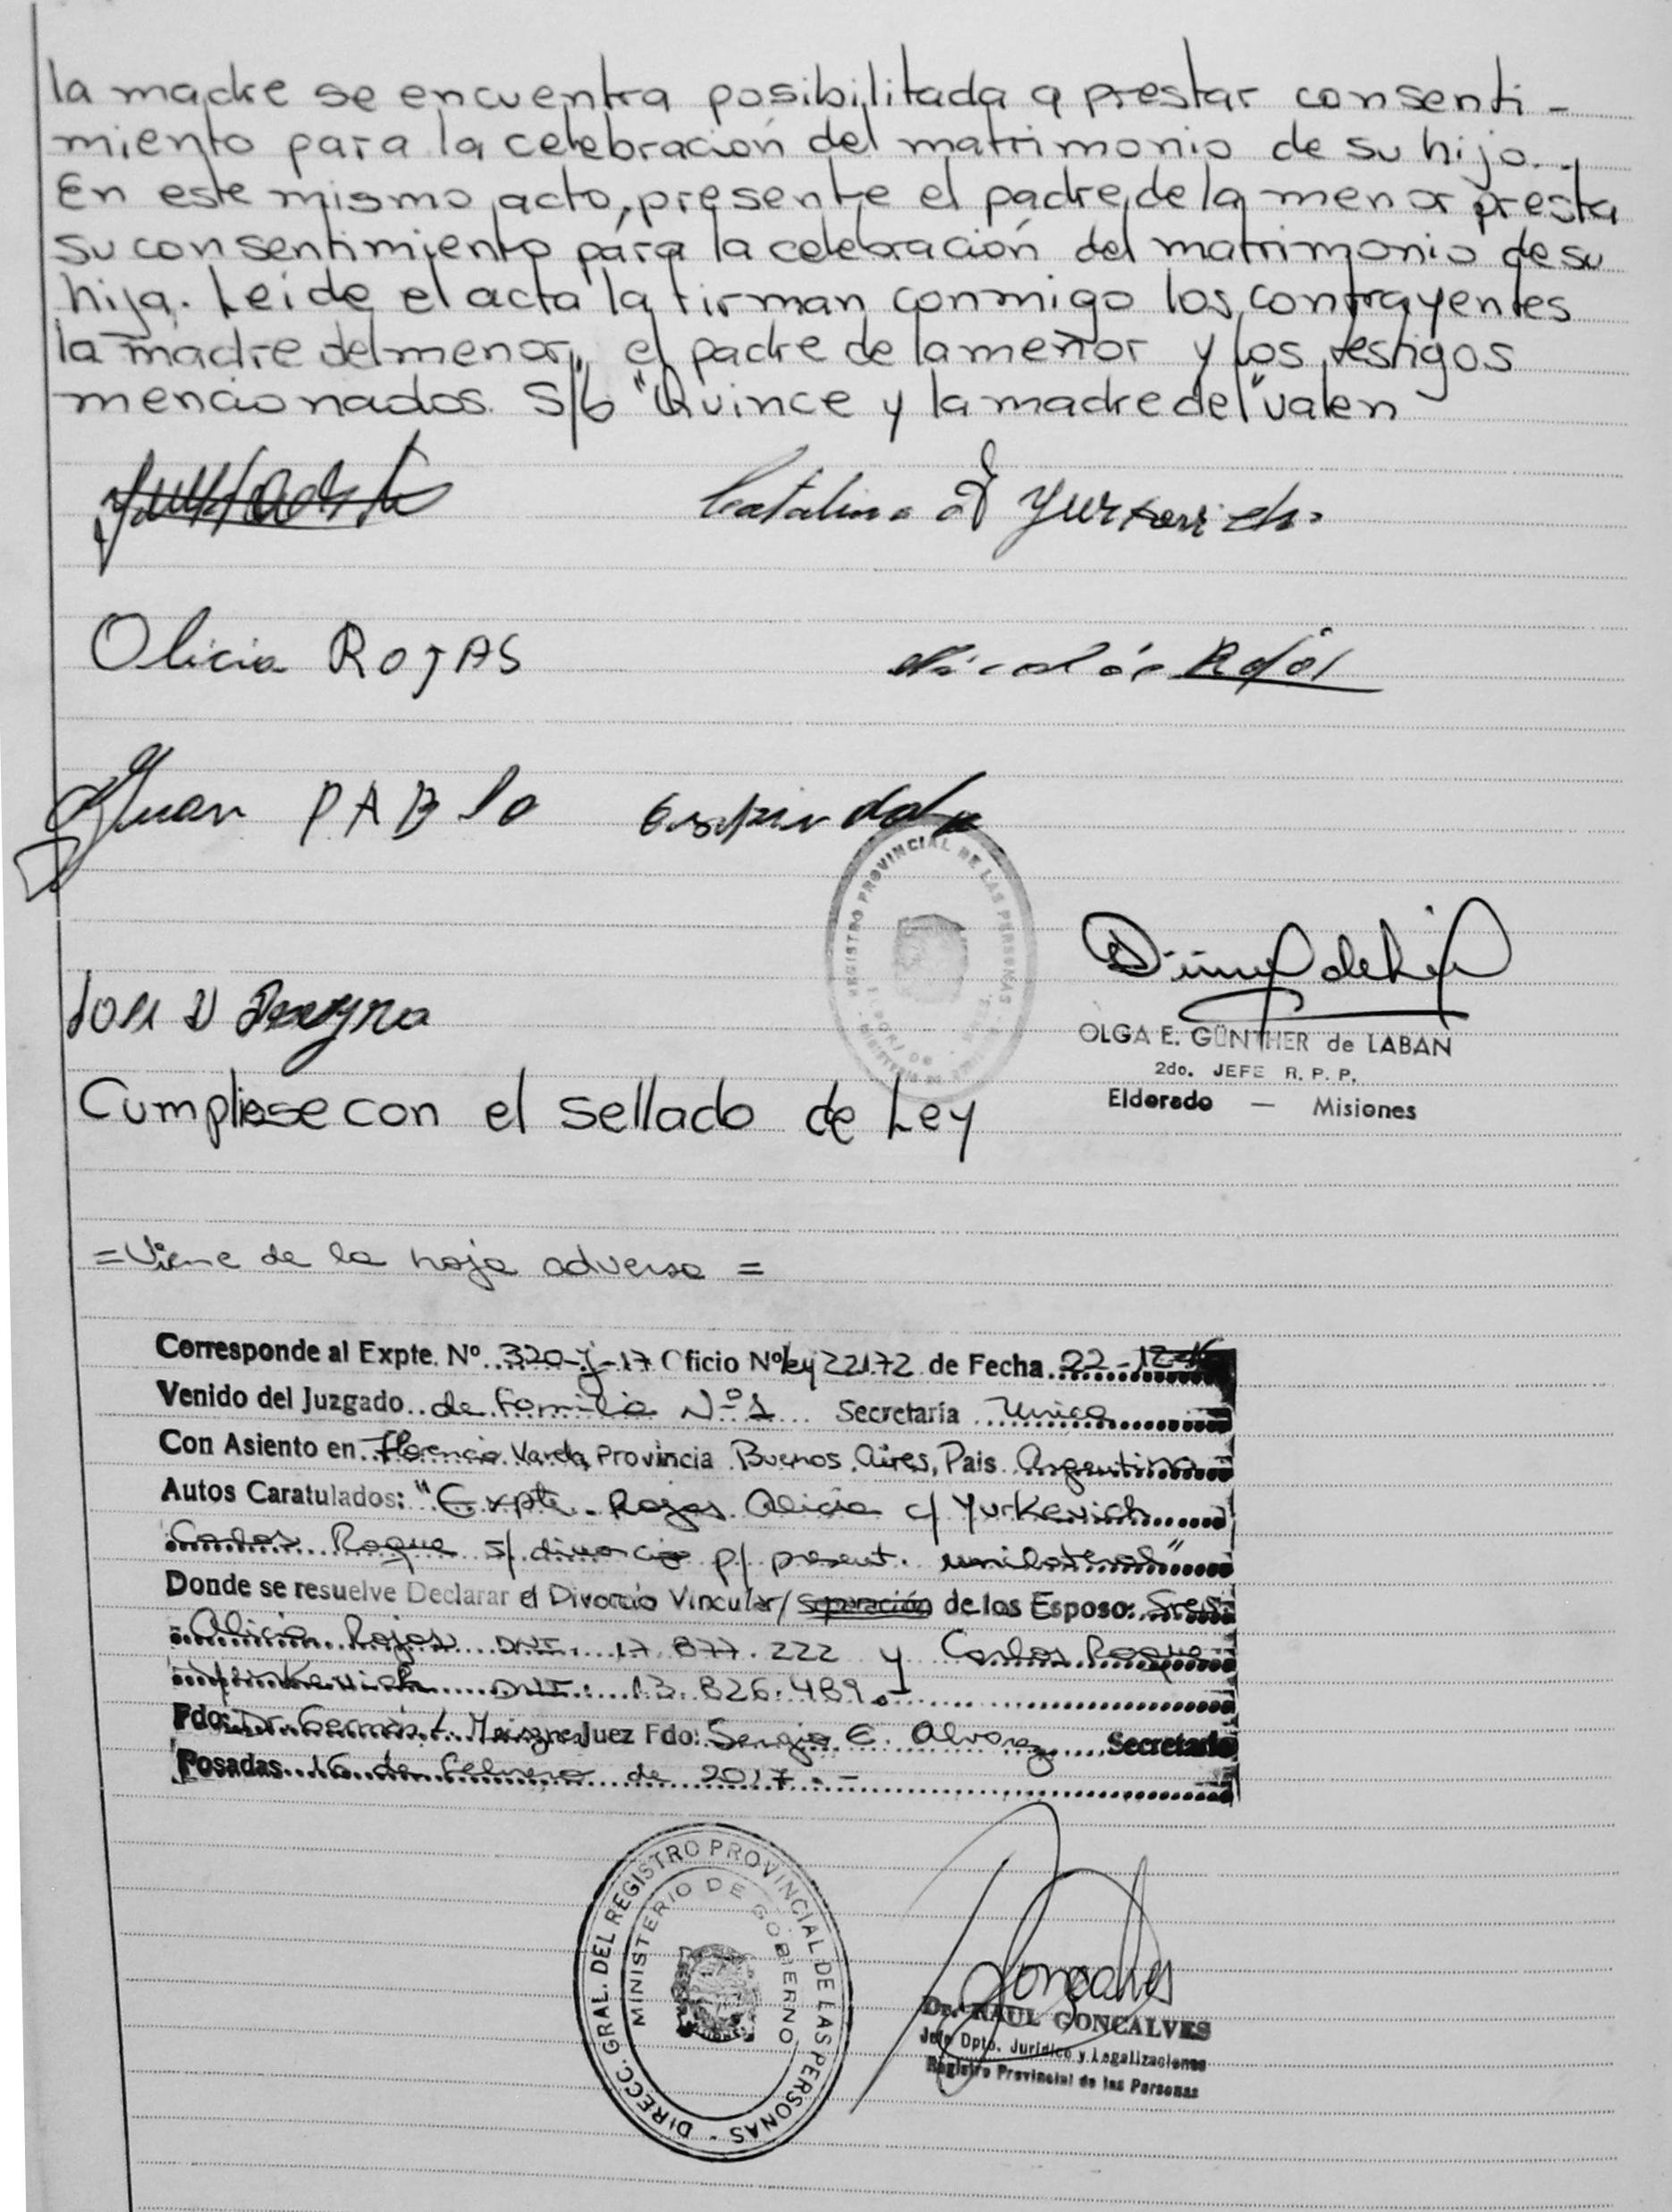 la madre se encuentra posibilitada a prestar consenti-
miento para la celebración del matrimonio de su hijo..
En este mismo acto, presente el padre de la menor presta
su consentimiento para la celebración del matrimonio de su
hija. Leída el acta la firman conmigo los contrayentes
la madre del menor, el padre de la menor y los testigos
mencionados. S/b "Quince y la madre del" valen
Catalina Yurkevich
Olicia ROJAS
Nicolás Rojas
Juan PABLO Espindola
REGISTRO PROVINCIAL DE LAS PERSONAS
OLGA E. GÜNTHER de LABAN
2do. JEFE R. P. P.
Eldorado — Misiones
Cumpliese con el sellado de Ley
=Viene de la hoja adversa =
Corresponde al Expte. Nº 320-J-17 Oficio Nº Ley 22172 de Fecha 22-12-16
Venido del Juzgado de Familia Nº 1 Secretaría Unica
Con Asiento en Florencio Varela Provincia Buenos Aires, Pais Argentina
Autos Caratulados: "Expte. Rojas Alicia c/ Yurkevich
Carlos Roque s/ divorcio p/ present. unilateral"
Donde se resuelve Declarar el Divorcio Vincular/ separación de los Esposo: Sres.
Alicia Rojas DNI. 17.877.222 y Carlos Roque
Yurkevich DNI: 13.826.489.
Fdo: Dr. Germán Juez Fdo: Sergio E. Alvarez Secretario
Posadas 16 de febrero de 2017.-
DIRECC. GRAL. DEL REGISTRO PROVINCIAL DE LAS PERSONAS -
MINISTERIO DE GOBIERNO
Goncalves
Dr. RAUL GONCALVES
Jefe Dpto. Jurídico y Legalizaciones
Registro Provincial de las Personas